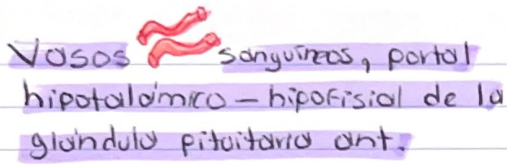 Vasos sanguíneos, portal
hipotalámico – hipofisial de la
glándula pituitaria ant.